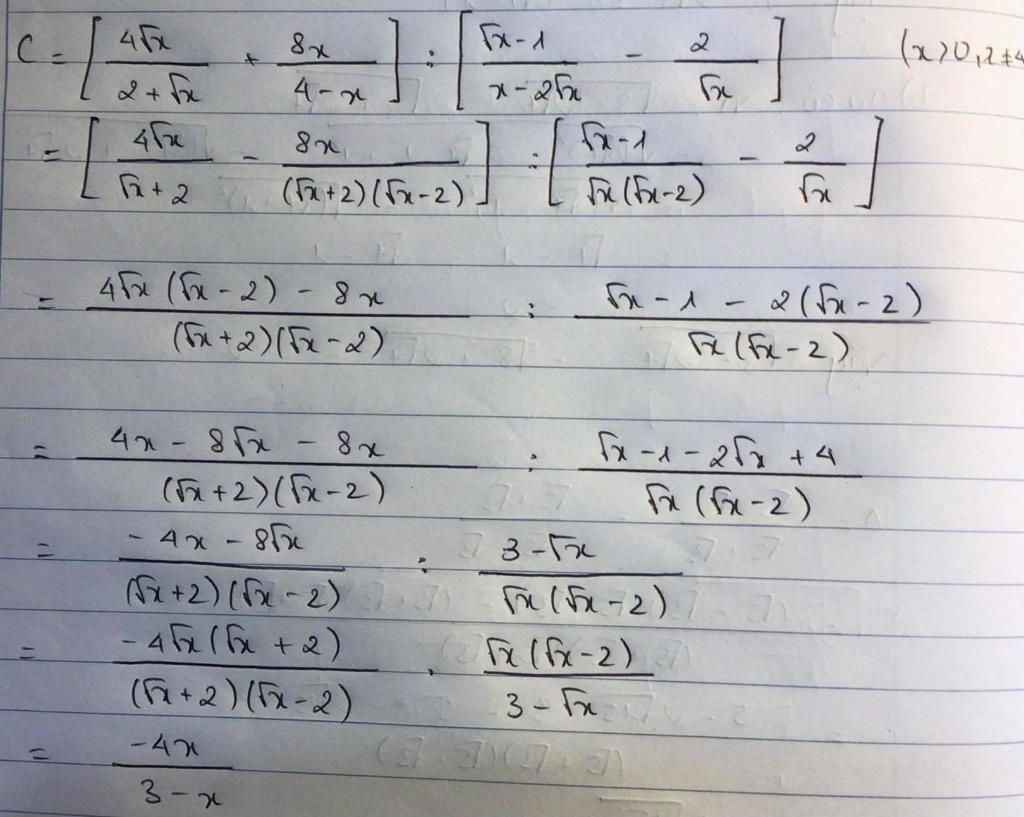 C = [ 4√x / (2 + √x) + 8x / (4 - x) ] : [ (√x - 1) / (x - 2√x) - 2 / √x ] (x > 0, x ≠ 4
= [ 4√x / (√x + 2) - 8x / ((√x + 2)(√x - 2)) ] : [ (√x - 1) / (√x(√x - 2)) - 2 / √x ]
= (4√x(√x - 2) - 8x) / ((√x + 2)(√x - 2)) : (√x - 1 - 2(√x - 2)) / (√x(√x - 2))
= (4x - 8√x - 8x) / ((√x + 2)(√x - 2)) : (√x - 1 - 2√x + 4) / (√x(√x - 2))
= (-4x - 8√x) / ((√x + 2)(√x - 2)) : (3 - √x) / (√x(√x - 2))
= (-4√x(√x + 2)) / ((√x + 2)(√x - 2)) . (√x(√x - 2)) / (3 - √x)
= -4x / (3 - x)